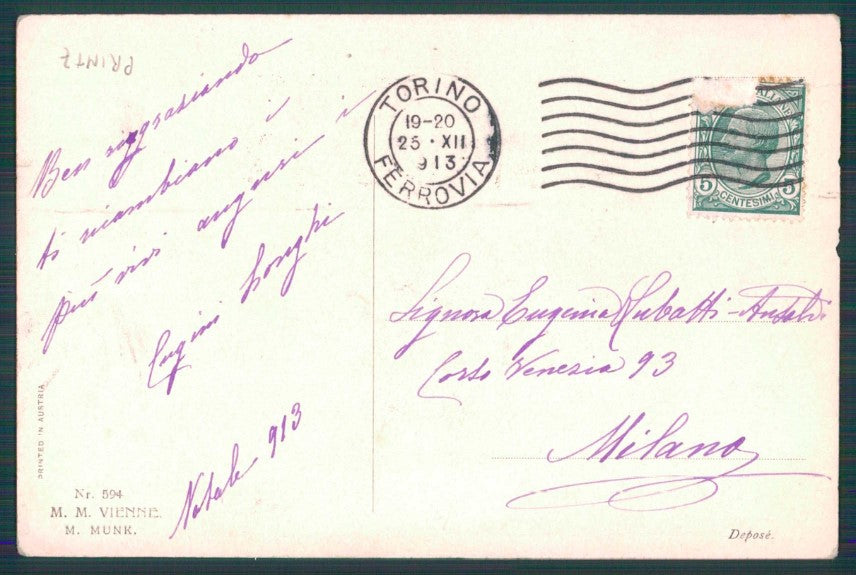 PRINTZ
Ben ringraziando
ti ricambiano i
più vivi auguri i
Cugini Longhi
Natale 913
PRINTED IN AUSTRIA
Nr. 594
M. M. VIENNE.
M. MUNK.
TORINO
19-20
25 · XII
913
FERROVIA
5 5
CENTESIMI
Signora Eugenia
Corso Venezia 93
Milano
Deposé.